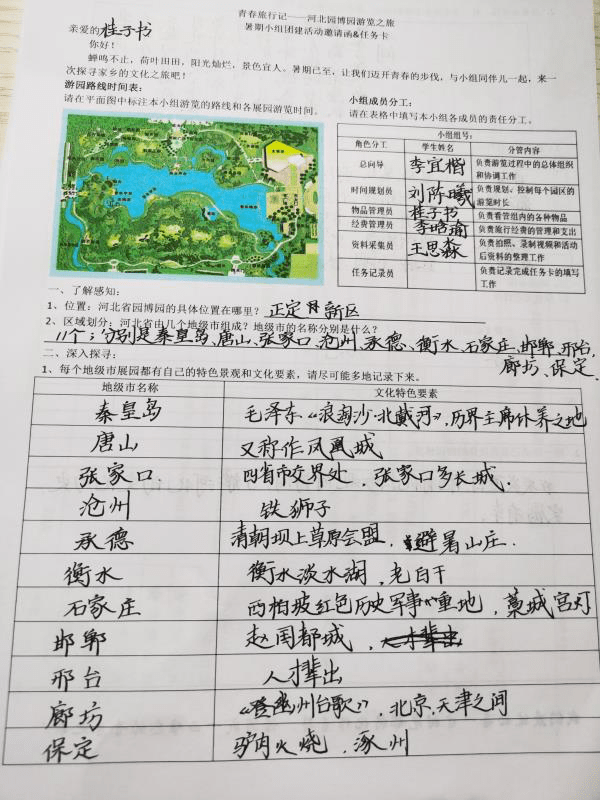 青春旅行记——河北园博园游览之旅
暑期小组团建活动邀请函&任务卡
亲爱的桂子书
你好！
蝉鸣不止，荷叶田田，阳光灿烂，景色宜人。暑期已至，让我们迈开青春的步伐，与小组同伴儿一起，来一
次探寻家乡的文化之旅吧！
游园路线时间表：
请在平面图中标注本小组游览的路线和各展园游览时间。
小组成员分工：
请在表格中填写本小组各成员的责任分工。
小组组号：
角色分工 学生姓名 分管内容
总向导 李宜楷 负责游览过程中的总体组织
和协调工作
时间规划员 刘陈曦 负责规划、控制每个园区的
游览时长
物品管理员 桂子书 负责看管组内的各种物品
经费管理员 李晗瑜 负责旅行经费的管理和支出
资料采集员 王思淼 负责拍照、录制视频和活动
后资料的整理工作
任务记录员 负责记录完成任务卡的填写
工作
一、了解感知：
1、位置：河北省园博园的具体位置在哪里？ 正定 新区
2、区域划分：河北省由几个地级市组成？地级市的名称分别是什么？
11个；分别是秦皇岛、唐山、张家口、沧州、承德、衡水、石家庄、邯郸、邢台、
廊坊、保定
二、深入探寻：
1、每个地级市展园都有自己的特色景观和文化要素，请尽可能多地记录下来。
地级市名称 文化特色要素
秦皇岛 毛泽东《浪淘沙·北戴河》，历界主席休养之地
唐山 又称作凤凰城
张家口 四省市交界处，张家口多长城.
沧州 铁狮子
承德 清朝坝上草原会盟，避暑山庄.
衡水 衡水淡水湖，老白干
石家庄 西柏坡红色历史军事重地，藁城宫灯
邯郸 赵国都城，
邢台 人才辈出
廊坊 《登幽州台歌》，北京、天津之间
保定 驴肉火烧，涿州